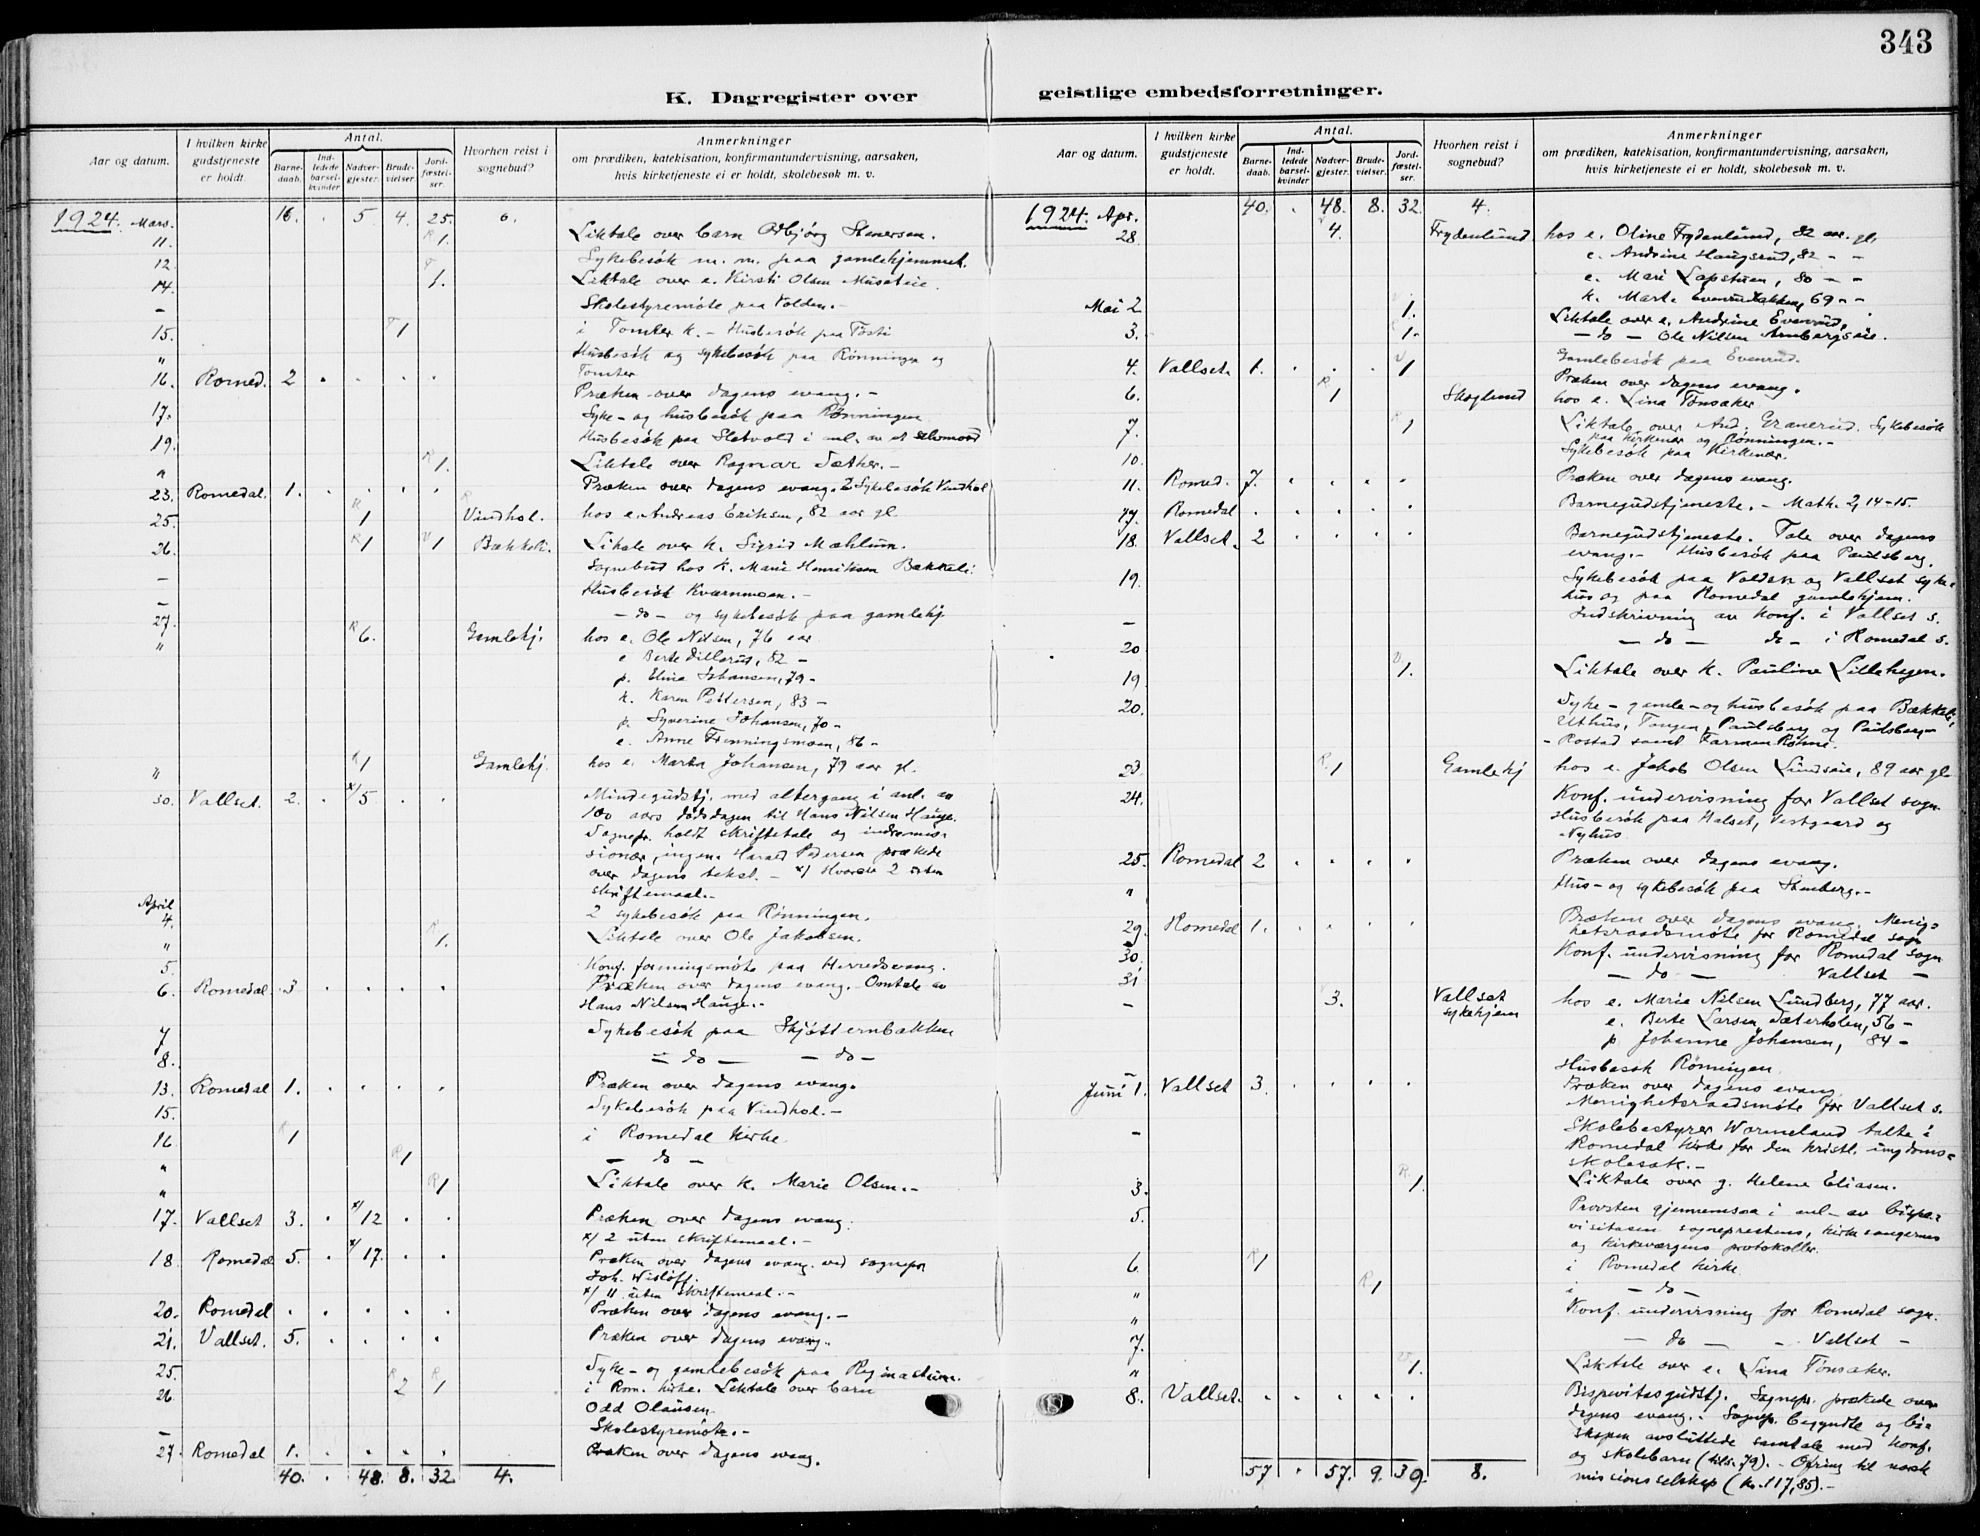 343
K. Dagregister over geistlige embedsforretninger.
Aar og datum. | I hvilken kirke gudstjeneste er holdt. | Antal. | Barnedaab. | Indledede barselkvinder | Nadvergjester. | Brudevielser. | Jordfæstelser. | Hvorhen reist i sognebud? | Anmerkninger om prædiken, katekisation, konfirmantundervisning, aarsaken, hvis kirketjeneste ei er holdt, skolebesøk m. v.
1924. Mars. 16. . 5. 4. 25. 6.
11. R 1. Liktale over barn Odbjørg Stenersen.
12. Sykebesök m. m. paa gamlehjemmet.
14. T 1. Liktale over e. Kirsti Olsen Museteie.
– Skolestyremöte paa Volden.–
15. T 1 i Tomter k. – Husbesök paa Tosti
" Husbesök og sykebesök paa Rönningen og
Tomter
16. Romed. 2 . . . . Præken over dagens evang. –
17. Syke- og husbesök paa Rönningen
19. Husbesök paa Sletvold i anl. av et selvmord
" R 1. Liktale over Ragnar Sæther.–
23. Romedal. 1. . . . . Præken over dagens evang. 2 Sykebesök Vindhol
25. R 1 R Vindhol. hos e. Andreas Eriksen, 82 aar gl
26. R 1 V 1 Bækkeli. Liktale over k. Sigrid Mæhlum.
– Sognebud hos k. Marie Henriksen Bækkeli.
– Husbesök Kværnmoen. –
27. – do – og sykebesök paa gamlehj
" R 6. Gamlehj. hos e. Ole Nilsen, 76 aar
e Berte Dillerud, 82 –
p. Elina Johansen, 79 –
k. Karen Pettersen, 83 –
p. Syverine Johansen, 70 –
e. Anne Frenningsmoen, 86 –
" R 1 Gamlehj. hos e. Marta Johansen, 79 aar gl.
30. Vallset. 2. . x/ 5 . . Mindegudstj. med altergang i anl. av
100 aars dödsdagen til Hans Nilsen Hauge.
Sognepr. holdt skriftetale og indremis-
sionær, ingen. Harald Pedersen prækede
over dagens tekst. – x/ Hvorav 2 uten
skriftemaal.–
April 4. 2 sykebesök paa Rönningen.
" R 1. Liktale over Ole Jakobsen.
5. Konf. foreningsmöte paa Herredsvang.
6. Romedal. 3 . . . . Præken over dagens evang. Omtale av
Hans Nilsen Hauge.–
7 Sykebesök paa Skjötternbækken
8. – do – – do –
13. Romedal 1. . . . . Præken over dagens evang.
15. Sykebesök paa Vindhol.–
16 R 1 i Romedal kirke
" R 1 – do –
" R 1 Liktale over k. Marie Olsen.–
17. Vallset 3. . x/ 12 . . Præken over dagens evang.
x/ 2 uten skriftemaal.–
18. Romedal 5. . x/ 17. . . Præken over dagens evang. ved sognepr
Joh. Wislöff.
x/ 11 uten skriftemaal.–
20. Romedal . . . . . Præken over dagens evang.–
21. Vallset. 5. . . . . Præken over dagens evang.
25. Syke- og gamlebesök paa
26 R 2 R 1 i Rom. kirke. Liktale over barn
Odd Olausen.
– Skolestyremöte.–
27. Romedal 1. . . . . Præken over dagens evang.
40. . 48. 8. 32 4.
Aar og datum. | I hvilken kirke gudstjeneste er holdt. | Antal. | Barnedaab. | Indledede barselkvinder | Nadvergjester. | Brudevielser. | Jordfæstelser. | Hvorhen reist i sognebud? | Anmerkninger om prædiken, katekisation, konfirmantundervisning, aarsaken, hvis kirketjeneste ei er holdt, skolebesøk m. v.
1924. Apr. 40. . 48. 8. 32. 4.
28. 4. Frydenlund. hos e. Oline Frydenlund, 82 aar. gl.
e. Andrine Haugsrud, 82 – –
e. Mari Lapstuen, 80 – –
k. Marte Evenrudbakken, 69 – –
Mai 2 1. Liktale over e. Andrine Evenrud.
3. 1. – do – Ole Nilsen Arnbergseie.
Gamlebesök paa Evenrud.
4. Vallset. 1. . . . V 1 Præken over dagens evang.
6. R 1 Skoglund hos e. Lina Tönsaker
7. R 1 Liktale over And. Granerud. Sykebesök
paa Kirkenær og Rönningen.–
10. Sykebesök paa Kirkenær.
11. Romed. 7. . . . . Præken over dagens evang.
17. Romedal . . . . . Barnegudstjeneste. – Math. 2, 14–15.
18. Vallset. 2 . . . . Barnegudstjeneste. Tale over dagens
evang.– Husbesök paa Paulsberg.
19. Sykebesök paa Volden og Vallset syke-
hus og paa Romedal gamlehjem.
– Indskrivning av konf. i Vallset s.
20 – do – do – i Romedal s.
19 V 1. Liktale over k. Pauline Lillehagen.
20. Syke- gamle- og husbesök paa Bækkeli,
Uthus, Tangen, Paulsberg og Paulsberg-
Rostad samt Farmen Röhne.
23 R 1 Gamlehj hos e. Jakob Olsen Lundseie, 89 aar gl
24. Konf. undervisning for Vallset sogn.
Husbesök paa Halset, Vestgaard og
Nyhus
25. Romedal 2 . . . . Præken over dagens evang.
" Hus- og sykebesök paa Stenberg.–
29. Romedal 1. . . . . Præken over dagens evang. Menig-
hetsraadsmöte for Romedal sogn
30. Konf. undervisning for Romedal sogn
31 – do – Vallset –
– 3. Vallset sykehjem hos e. Marie Nilsen Lundberg, 77 aar.
e. Berte Larsen Sæterholen, 56 –
p. Johanne Johansen, 84 –
– Husbesök Rönningen.
Juni 1. Vallset 3. . . . . Præken over dagens evang
Menighetsraadsmöte for Vallset s.
– Skolebestyrer Wormeland talte i
Romedal kirke for den kristl. ungdoms-
skolesak.–
3. R. 1. Liktale over g. Helene Eliasen.
5. Provsten gjennemsaa i anl. av bispe-
visitasen sogneprestens, kirkesangernes
og kirkevergens protokoller.
6. R 1 i Romedal kirke
" R 1 i – do –
" Konf. undervisning for Romedal sogn.
7. – do – – Vallset –
" 1. Liktale over e. Lina Tönsaker.
8. Vallset. . . . . . Bispevitasgudstj. Sognepr. prækede over
dagens evang.. Sognepr. begyndte og bi-
skopen avsluttede samtale med konf.
og skolebarn (tils. 79). – Ofring til norsk
missionsselskap (kr. 117,85).–
57 . 57. 9. 39. 8.